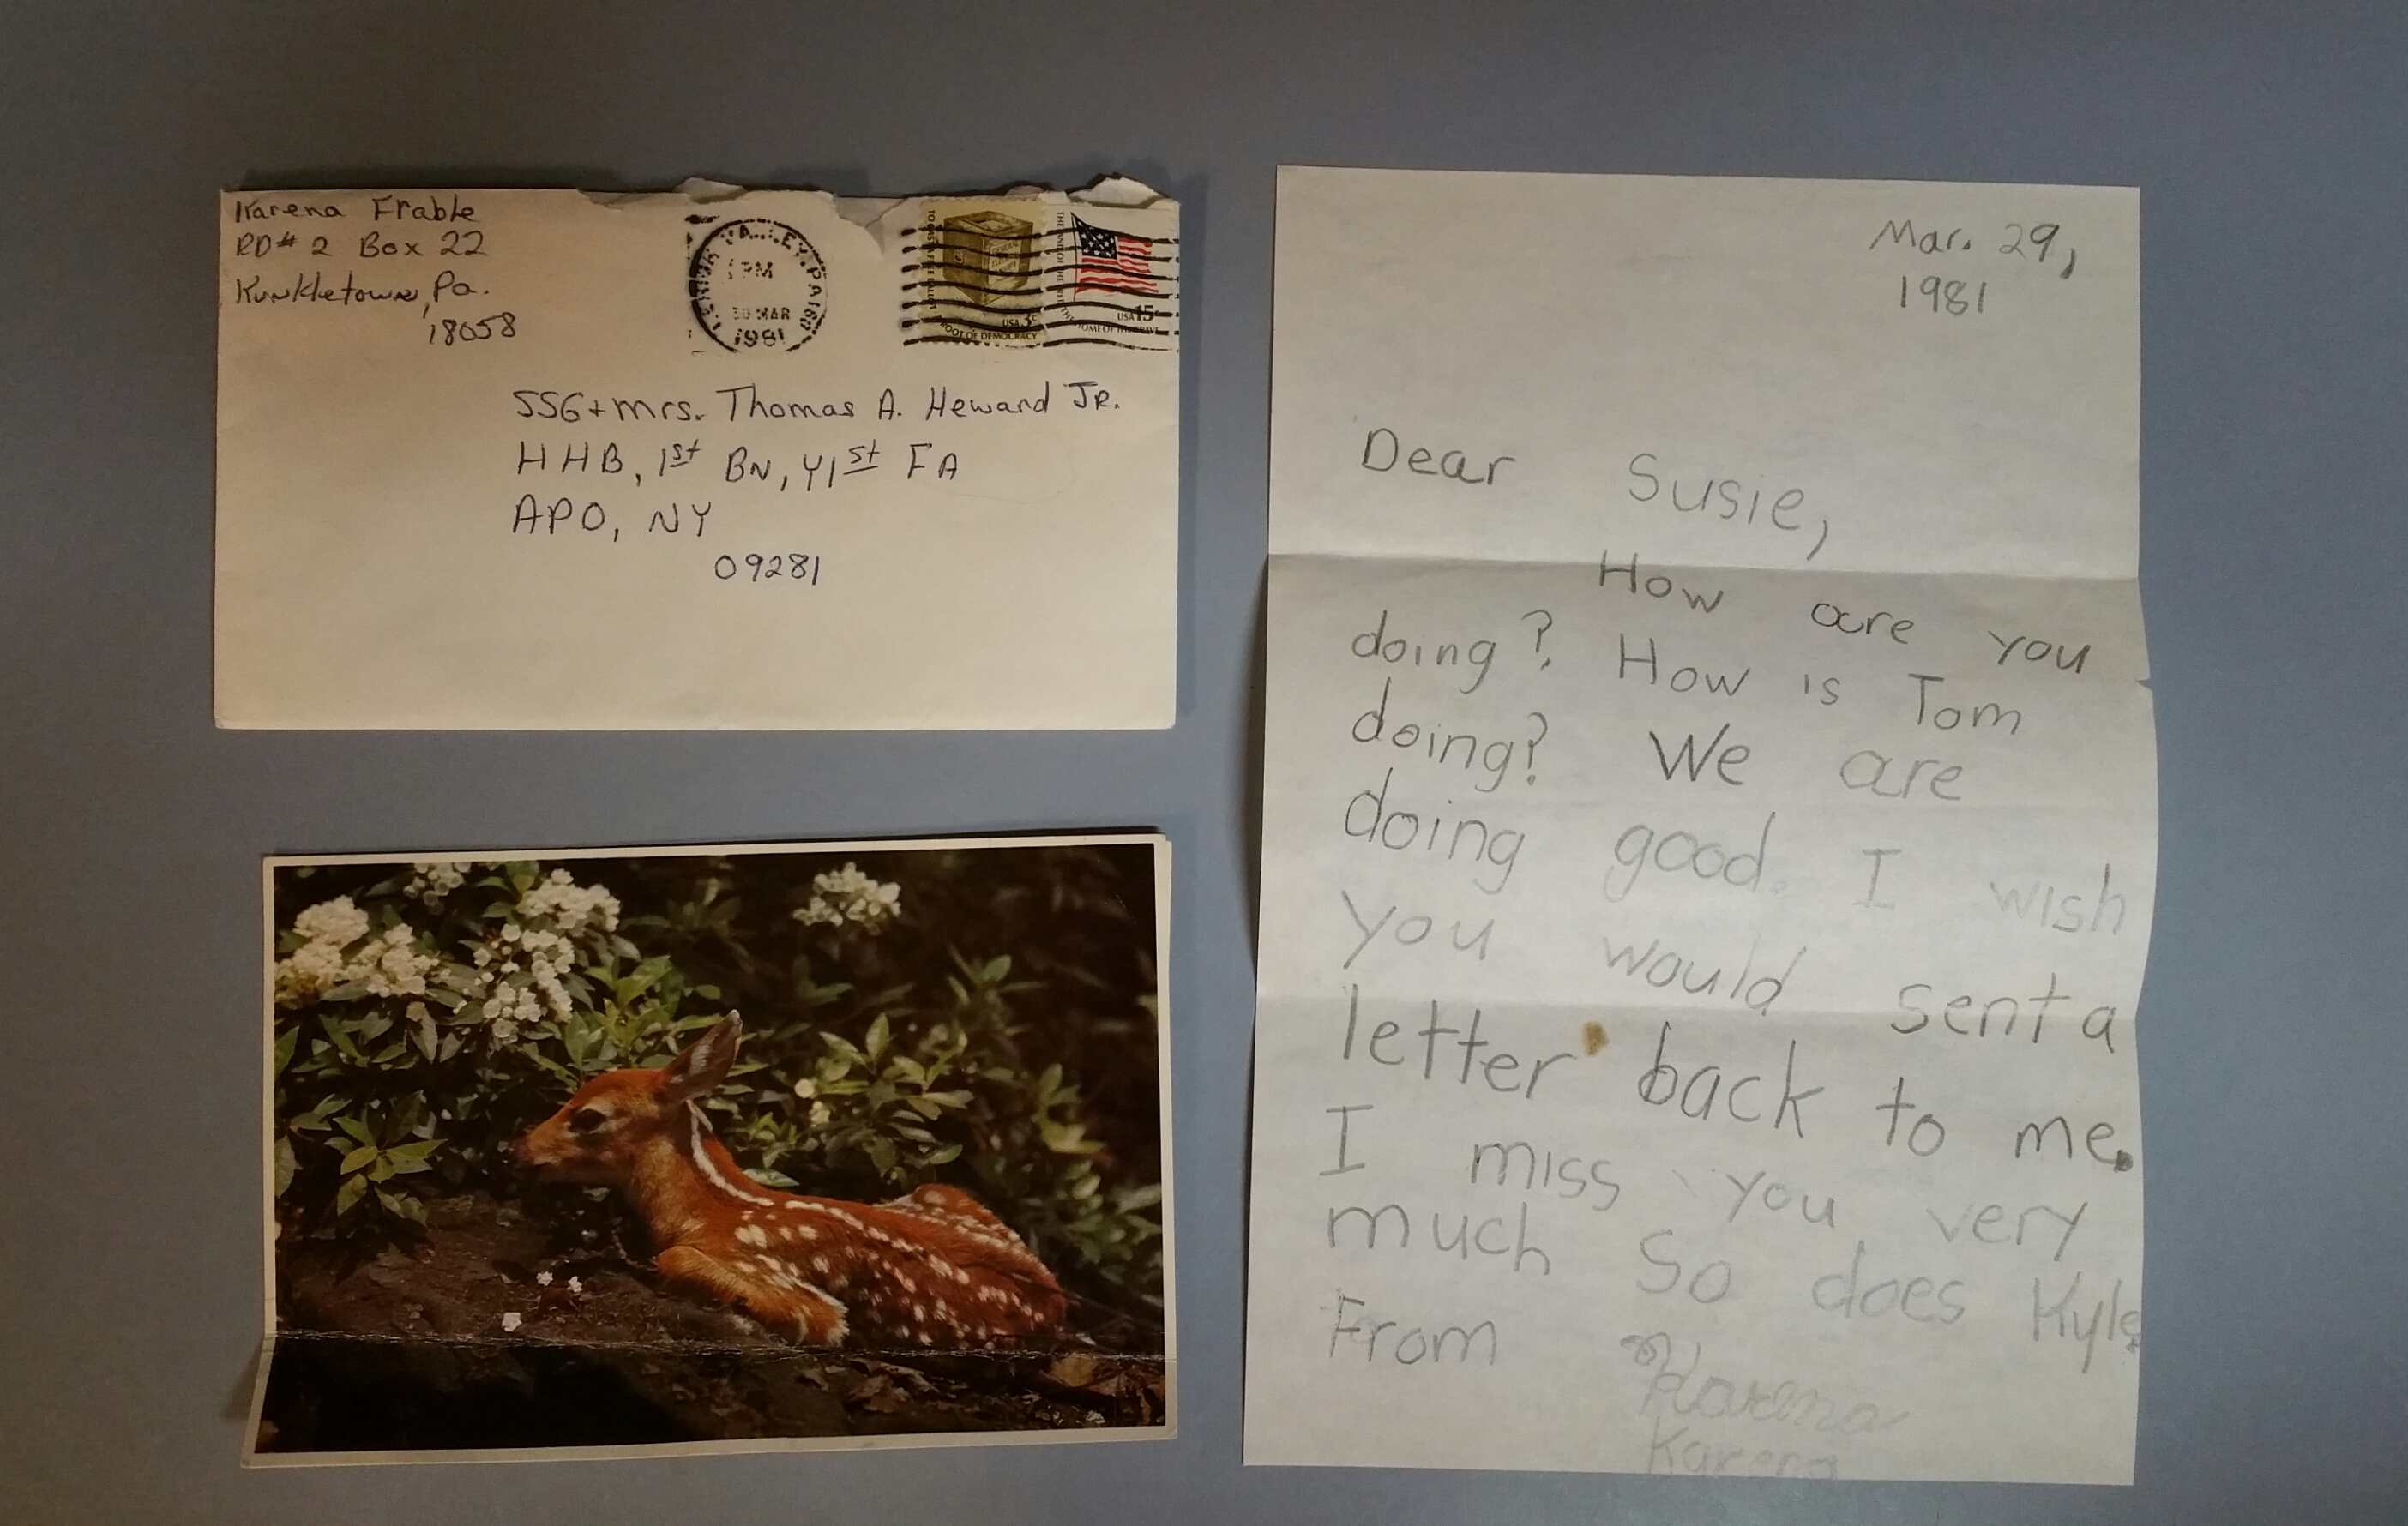 Karena Frable
RD# 2 Box 22
Kunkletown, Pa.
18058
LEHIGH VALLEY, PA 180
PM
30 MAR
1981
TO CAST A FREE BALLOT
A ROOT OF DEMOCRACY
USA 3c
THE LAND OF THE FREE THE
HOME OF THE BRAVE
USA 15c
SSG + Mrs. Thomas A. Heward Jr.
HHB, 1st BN, 41st FA
APO, NY
09281
Mar. 29,
1981
Dear Susie,
How are you
doing? How is Tom
doing? We are
doing good. I wish
you would sent a
letter back to me.
I miss you very
much So does Kyle.
From Karena
Karena